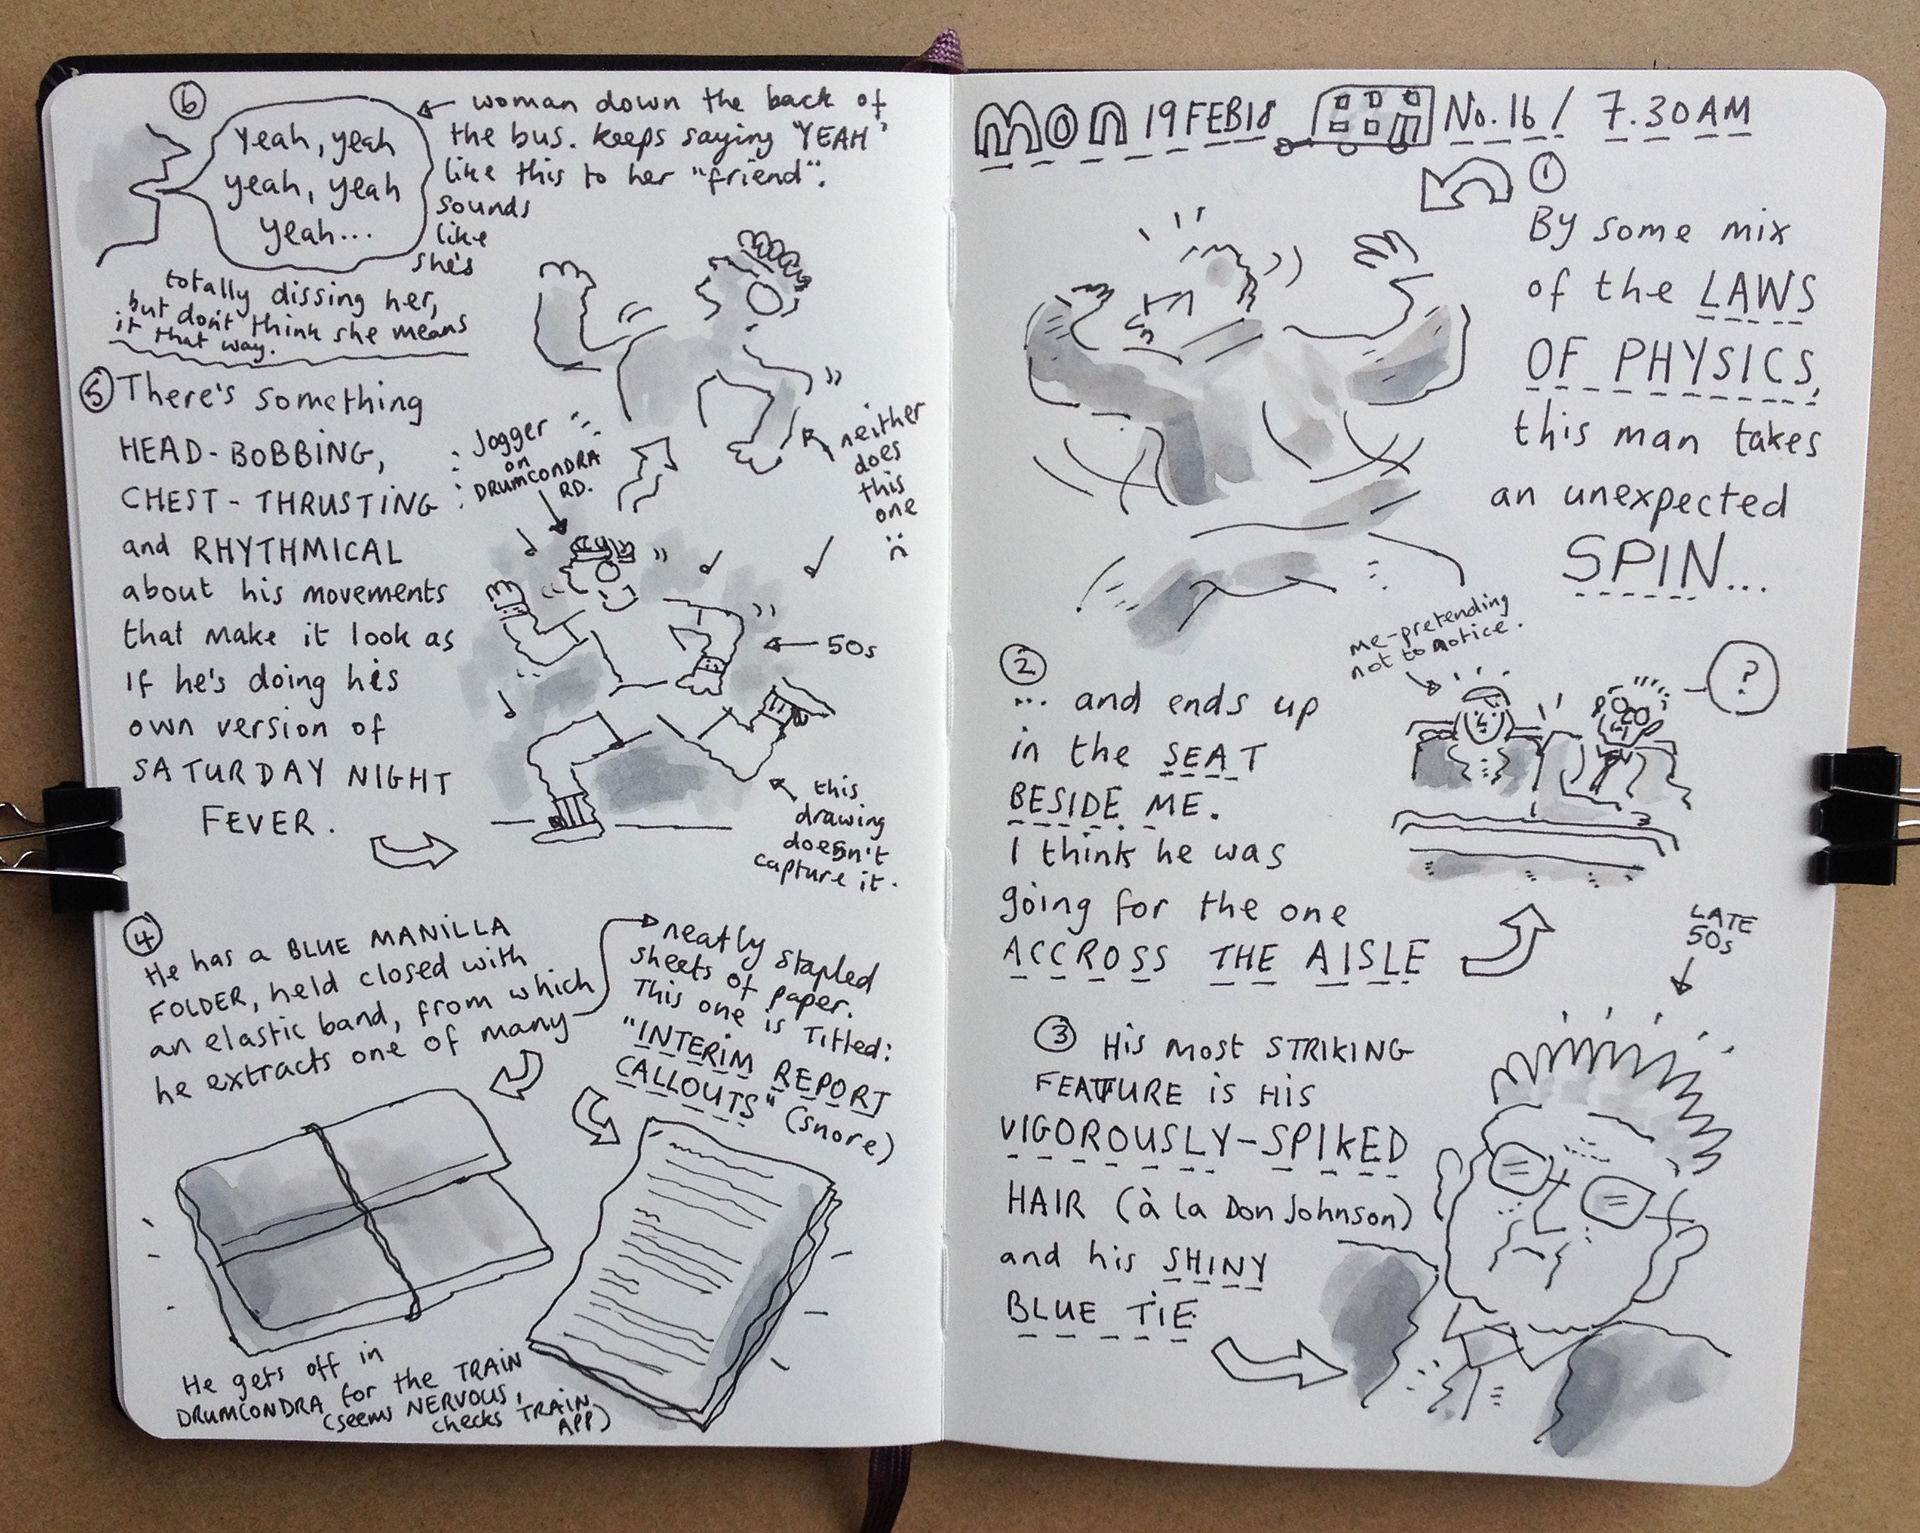 MON 19 FEB 18 No. 16 / 7.30 AM
①
By some mix
of the LAWS
OF PHYSICS,
this man takes
an unexpected
SPIN...
②
... and ends up
in the SEAT
BESIDE ME.
I think he was
going for the one
ACCROSS THE AISLE
me-pretending
not to notice.
?
③ His most STRIKING
FEATURE is HIS
VIGOROUSLY-SPIKED
HAIR (à la Don Johnson)
and his SHINY
BLUE TIE
LATE
50s
④
He has a BLUE MANILLA
FOLDER, held closed with
an elastic band, from which
he extracts one of many
neatly stapled
sheets of paper.
This one is Titled:
"INTERIM REPORT
CALLOUTS" (snore)
He gets off in
DRUMCONDRA for the TRAIN
(seems NERVOUS,
checks TRAIN
APP)
⑤ There's something
HEAD-BOBBING,
CHEST-THRUSTING
and RHYTHMICAL
about his movements
that make it look as
if he's doing his
own version of
SATURDAY NIGHT
FEVER.
Jogger
on
DRUMCONDRA
RD.
50s
this
drawing
doesn't
capture it.
neither
does
this
one
⑥
Yeah, yeah
yeah, yeah
yeah...
woman down the back of
the bus. keeps saying 'YEAH'
like this to her "friend".
sounds
like
she's
totally dissing her,
but don't think she means
it that way.